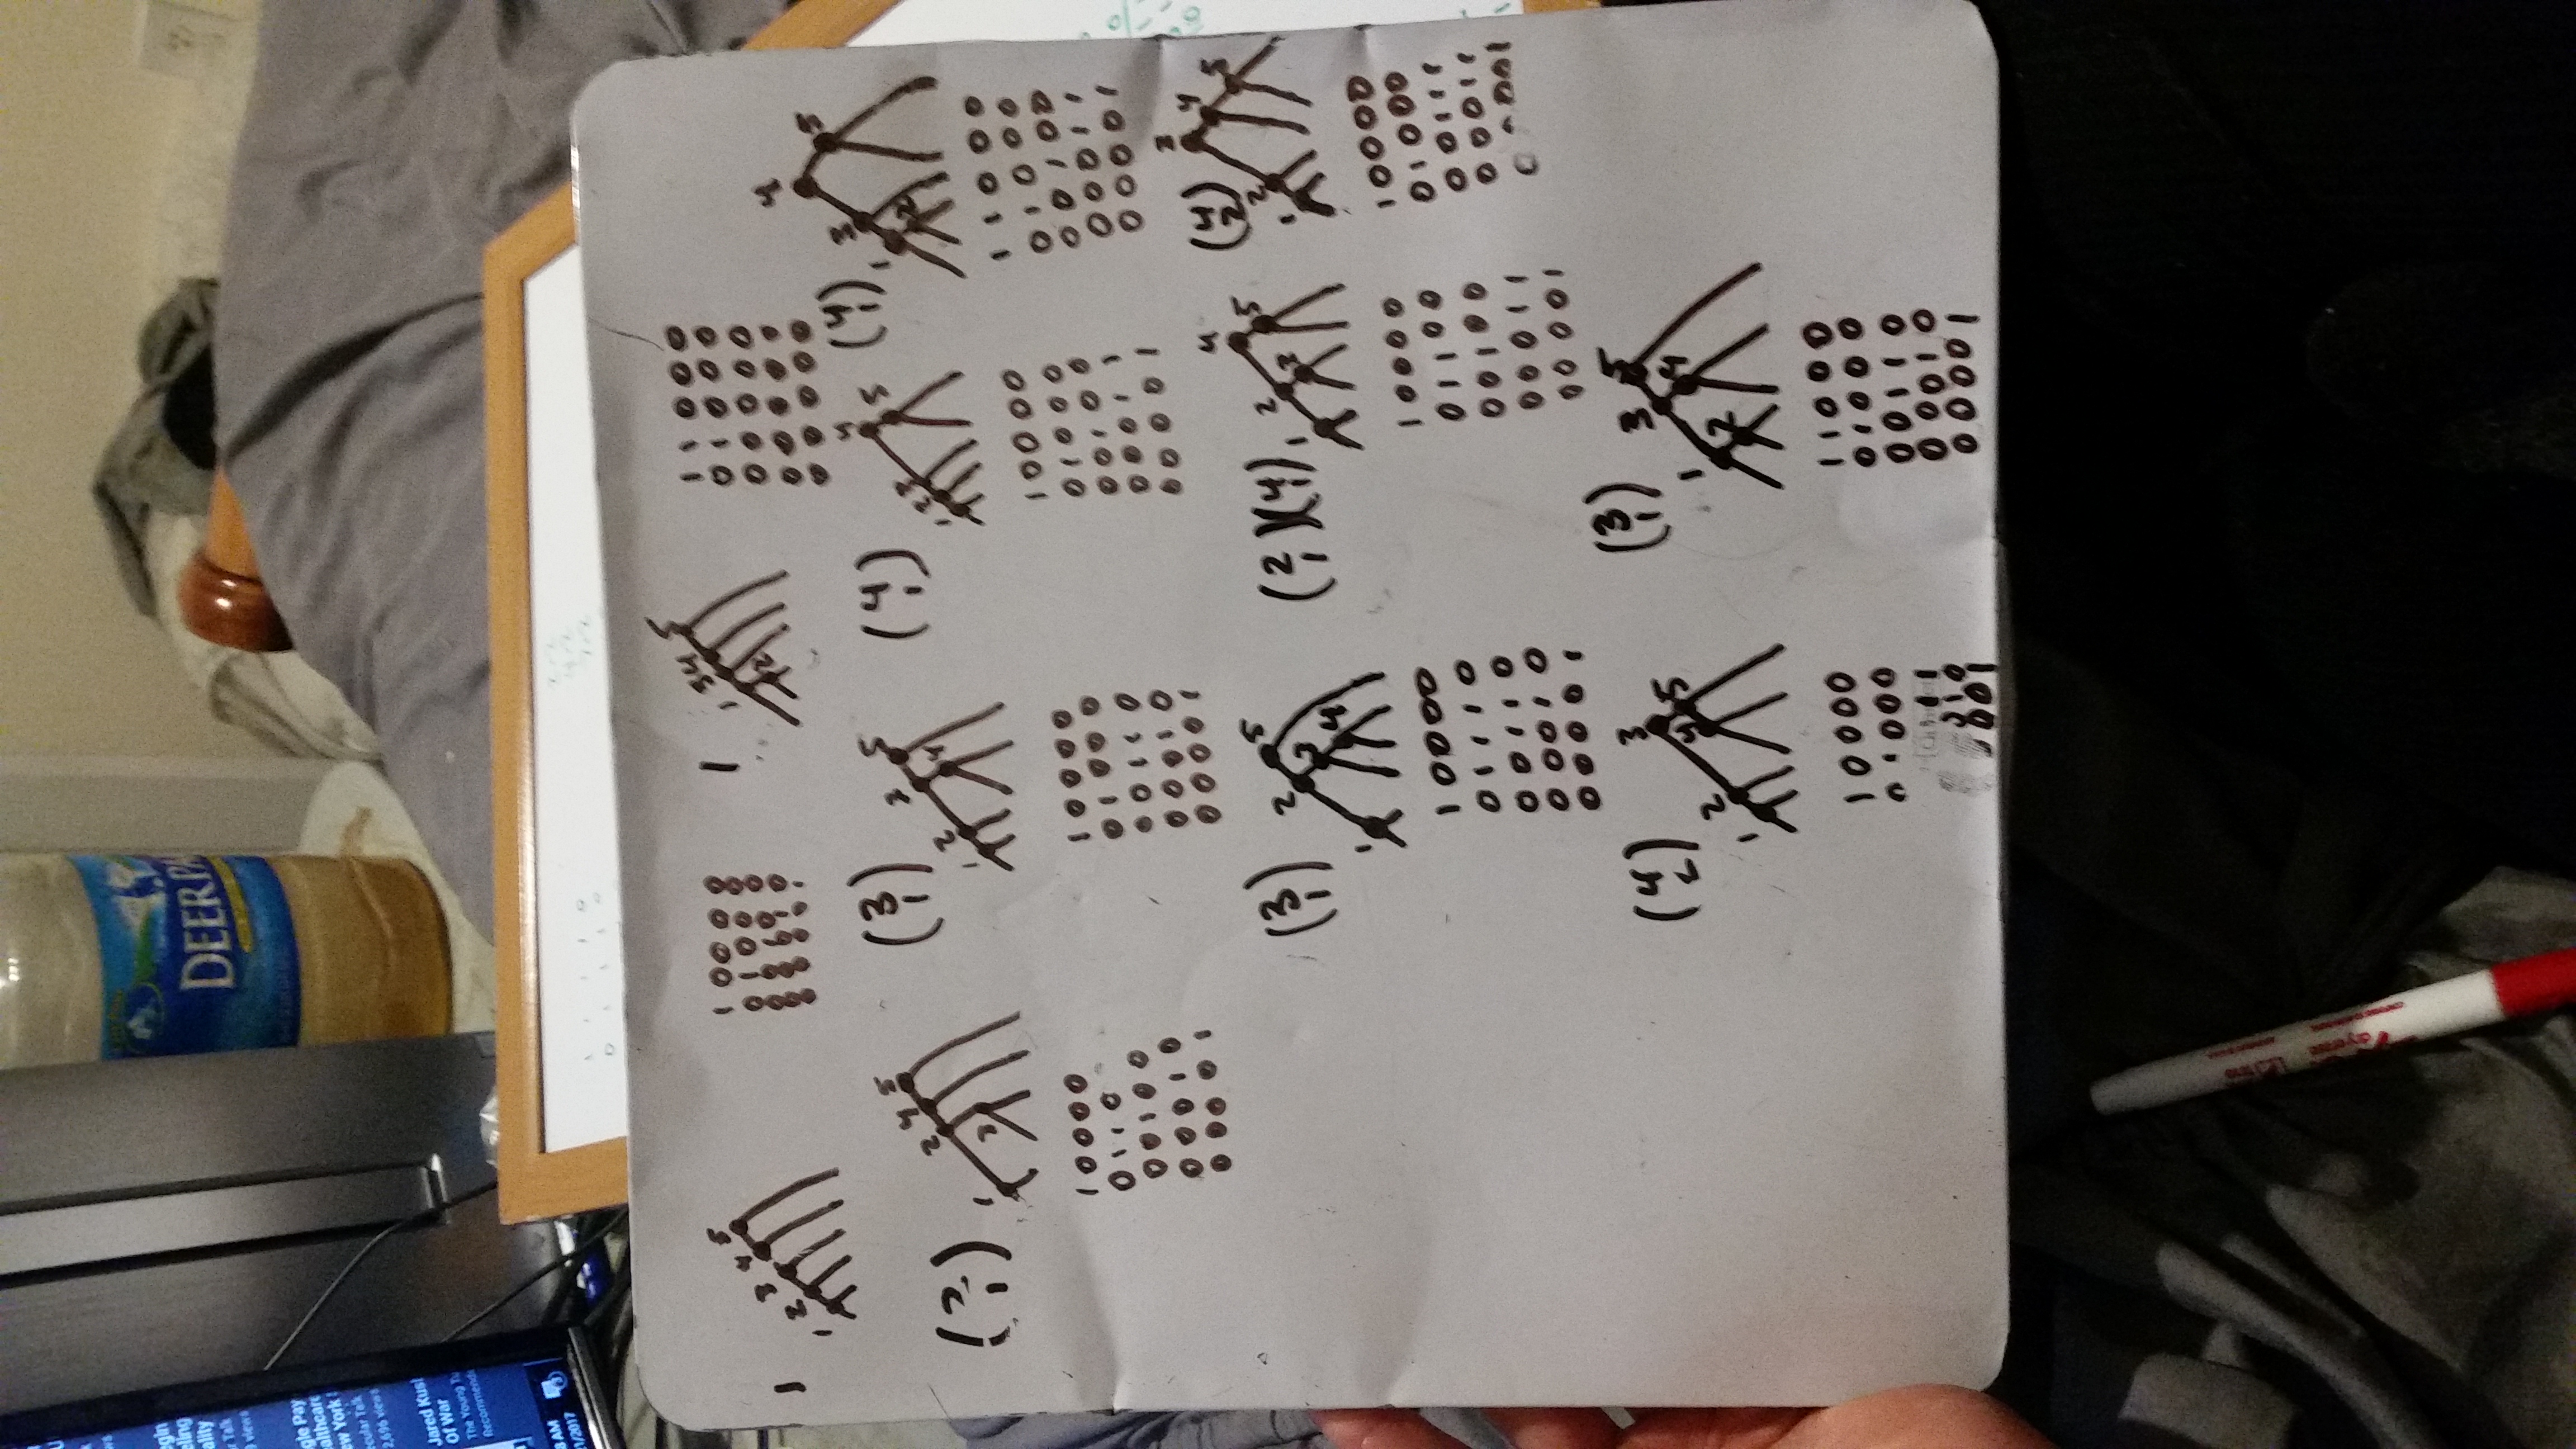 DEER PA
egin
eling
ality
r Talk
9 views
gle Pay
althcare
ew York
ecular Talk
2,696 views
Jared Kusl
Of War
The Young Tu
Recommende
8 AM
21/2017
1
1 2 3 4 5
1 0 0 0 0
0 1 0 0 0
1
1 2 3 4 5
1 1 0 0 0
0 1 0 0 0
0 0 0 0 0
0 0 0 0 0
0 0 0 0 0
(2 1)
1 2 3 4 5
1 0 0 0 0
0 1 1 0
0 0 1 0 0
0 0 0 1 0
0 0 0 0 1
(3 1)
1 2 3 4 5
1 0 0 0 0
0 1 0 0 0
0 0 1 1 0
0 0 0 1 0
0 0 0 0 1
(4 1)
1 2 3 4 5
1 0 0 0 0
0 1 0 0 0
0 0 1 0 0
0 0 0 1 1
0 0 0 0 1
(4 1)
1 2 3 4 5
1 1 0 0 0
0 1 0 0 0
0 0 1 0 0
0 0 0 1 1
0 0 0 0 1
(3 1)
1 2 3 4 5
1 0 0 0 0
0 1 1 1 0
0 0 1 1 0
0 0 0 1 0
0 0 0 0 1
(2 1)(4 1)
1 2 3 4 5
1 0 0 0 0
0 1 1 0 0
0 0 1 0 0
0 0 0 1 1
0 0 0 0 1
(4 2)
1 2 3 4 5
1 0 0 0 0
0 1 0 0 0
0 0 1 1 1
0 0 0 1 1
0 0 0 1
(4 2)
1 2 3 4 5
1 0 0 0 0
0 1 0 0 0
1 1
0 1 0
0 0 1
(3 1)
1 2 3 4 5
1 1 0 0 0
0 1 0 0 0
0 0 1 1 0
0 0 0 1 0
0 0 0 0 1